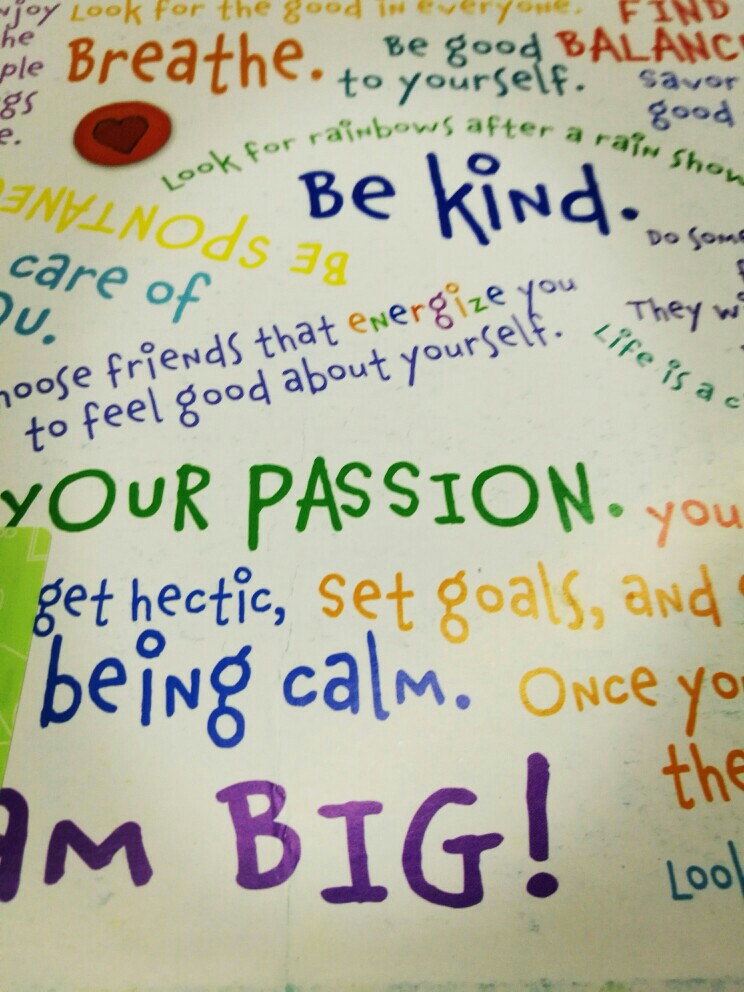 njoy Look for the good in everyone. FIND
he Breathe. Be good BALANC
ple to yourself. savor
gs good
e.
Look for rainbows after a rain show
Be kind.
BE SPONTANE
Do some
care of
ou.
They wi
hoose friends that energize you
to feel good about yourself.
Life is a c
YOUR PASSION. you
get hectic, set goals, and
being calm. Once yo
the
am BIG!
Look